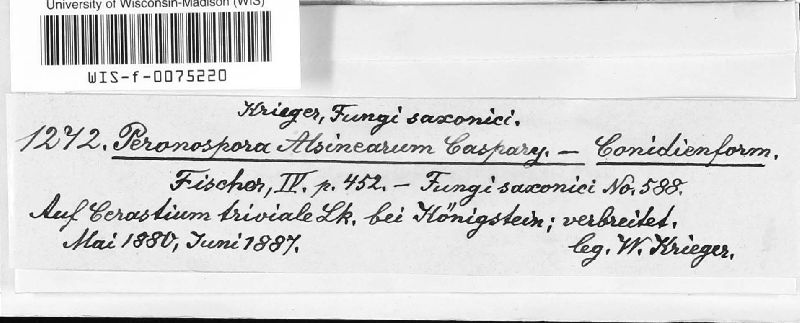 University of Wisconsin-Madison (WIS)
WIS-f-0075220
Krieger, Fungi saxonici.
1272. Peronospora Alsinearum Caspary. — Conidienform.
Fischer, IV. p. 452. — Fungi saxonici No. 588.
Auf Cerastium triviale Lk. bei Königstein; verbreitet.
Mai 1880, Juni 1887.
leg. W. Krieger.